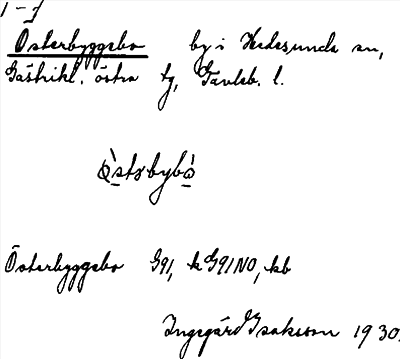 Österbyggebo by i Hedesunda sn,
Gästrikl. östra tg, Gävleb. l.
Österbyggebo G91, k G91NO, kb
Ingegärd Isaksson 1930.